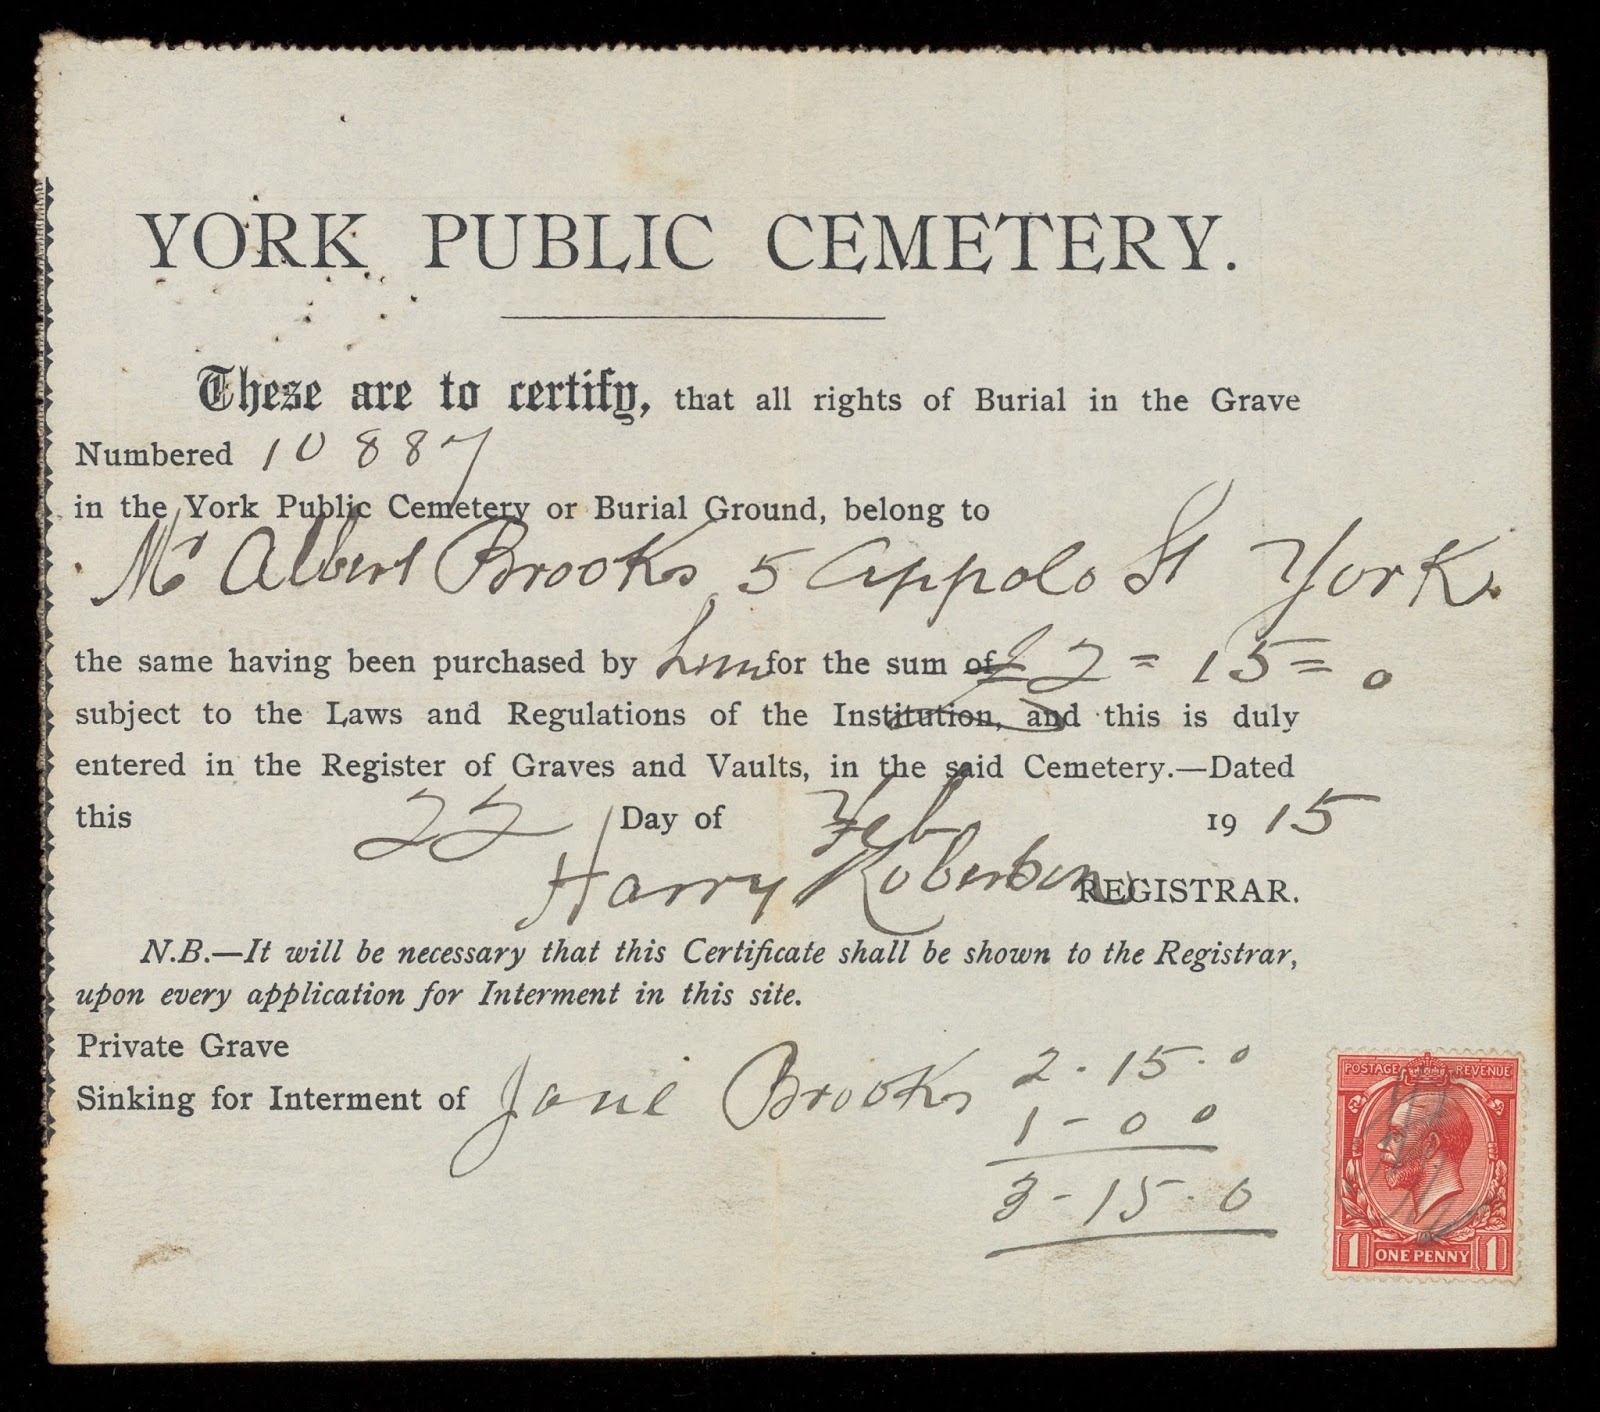 YORK PUBLIC CEMETERY.
These are to certify, that all rights of Burial in the Grave
Numbered 10887
in the York Public Cemetery or Burial Ground, belong to
Mr Albert Brooks 5 Appolo St York.
the same having been purchased by him for the sum of £2=15=0
subject to the Laws and Regulations of the Institution, and this is duly
entered in the Register of Graves and Vaults, in the said Cemetery.—Dated
this 22 Day of Feb 1915
Harry Robertson REGISTRAR.
N.B.—It will be necessary that this Certificate shall be shown to the Registrar,
upon every application for Interment in this site.
Private Grave 2.15.0
Sinking for Interment of Jane Brooks 1-0 0
3-15.0
POSTAGE REVENUE
1 ONE PENNY 1